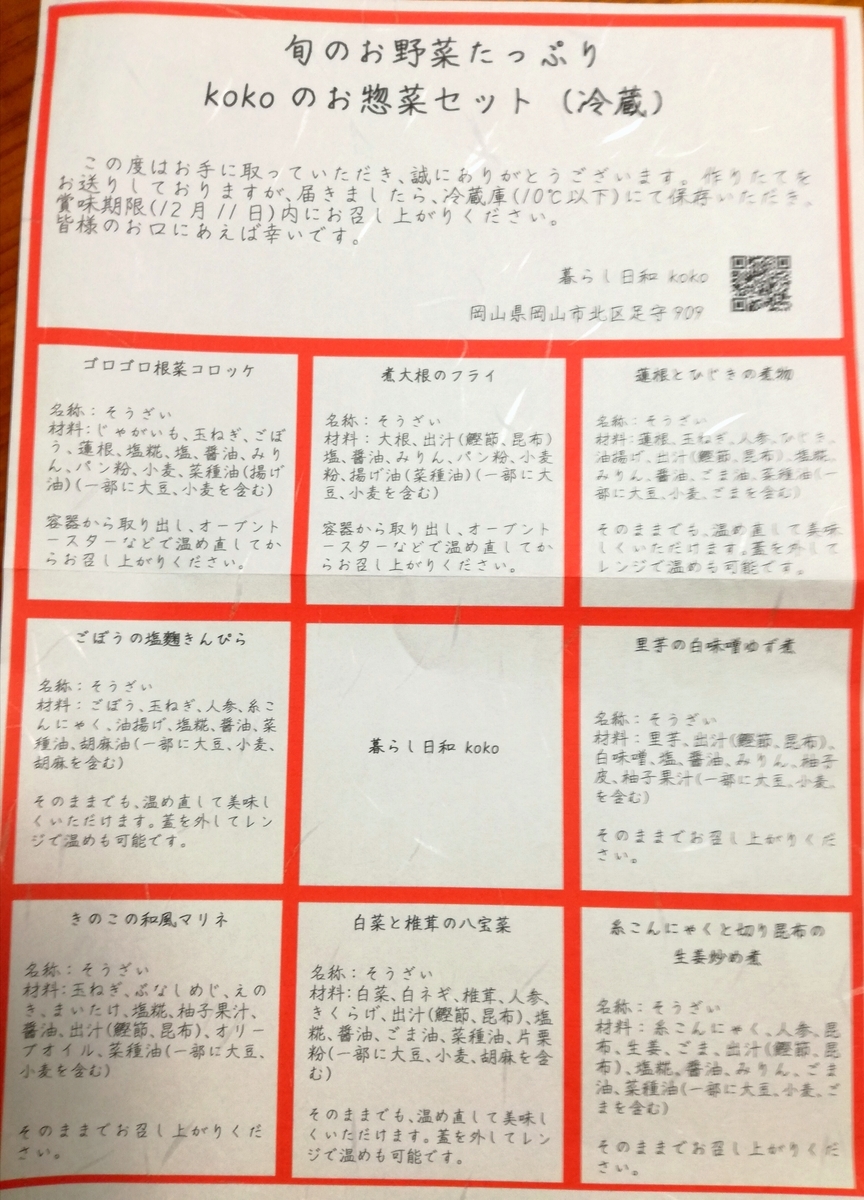 旬のお野菜たっぷり
kokoのお惣菜セット（冷蔵）
この度はお手に取っていただき、誠にありがとうございます。作りたてを
お送りしておりますが、届きましたら、冷蔵庫(10℃以下)にて保存いただき、
賞味期限(12月11日)内にお召し上がりください。
皆様のお口にあえば幸いです。
暮らし日和 koko
岡山県岡山市北区足守909
ゴロゴロ根菜コロッケ
名称：そうざい
材料：じゃがいも、玉ねぎ、ごぼ
う、蓮根、塩糀、塩、醤油、みり
ん、パン粉、小麦、菜種油(揚げ
油)(一部に大豆、小麦を含む)
容器から取り出し、オーブント
ースターなどで温め直してか
らお召し上がりください。
煮大根のフライ
名称：そうざい
材料：大根、出汁(鰹節、昆布)
塩、醤油、みりん、パン粉、小麦
粉、揚げ油(菜種油)(一部に大
豆、小麦を含む)
容器から取り出し、オーブント
ースターなどで温め直してか
らお召し上がりください。
蓮根とひじきの煮物
名称：そうざい
材料：蓮根、玉ねぎ、人参、ひじき、
油揚げ、出汁(鰹節、昆布)、塩糀、
みりん、醤油、ごま油、菜種油(一
部に大豆、小麦、ごまを含む)
そのままでも、温め直して美味
しくいただけます。蓋を外して
レンジで温めも可能です。
ごぼうの塩麹きんぴら
名称：そうざい
材料：ごぼう、玉ねぎ、人参、糸こ
んにゃく、油揚げ、塩糀、醤油、菜
種油、胡麻油(一部に大豆、小麦、
胡麻を含む)
そのままでも、温め直して美味し
くいただけます。蓋を外してレン
ジで温めも可能です。
暮らし日和 koko
里芋の白味噌ゆず煮
名称：そうざい
材料：里芋、出汁(鰹節、昆布)、
白味噌、塩、醤油、みりん、柚子
皮、柚子果汁(一部に大豆、小麦、
を含む)
そのままでお召し上がりくだ
さい。
きのこの和風マリネ
名称：そうざい
材料：玉ねぎ、ぶなしめじ、えの
き、まいたけ、塩糀、柚子果汁、
醤油、出汁(鰹節、昆布)、オリー
ブオイル、菜種油(一部に大豆、
小麦を含む)
そのままでお召し上がりくだ
さい。
白菜と椎茸の八宝菜
名称：そうざい
材料：白菜、白ネギ、椎茸、人参、
きくらげ、出汁(鰹節、昆布)、塩
糀、醤油、ごま油、菜種油、片栗
粉(一部に大豆、小麦、胡麻を含
む)
そのままでも、温め直して美味し
くいただけます。蓋を外してレン
ジで温めも可能です。
糸こんにゃくと切り昆布の
生姜炒め煮
名称：そうざい
材料：糸こんにゃく、人参、昆
布、生姜、ごま、出汁(鰹節、昆
布)、塩糀、醤油、みりん、ごま
油、菜種油(一部に大豆、小麦、ご
まを含む)
そのままでお召し上がりくだ
さい。